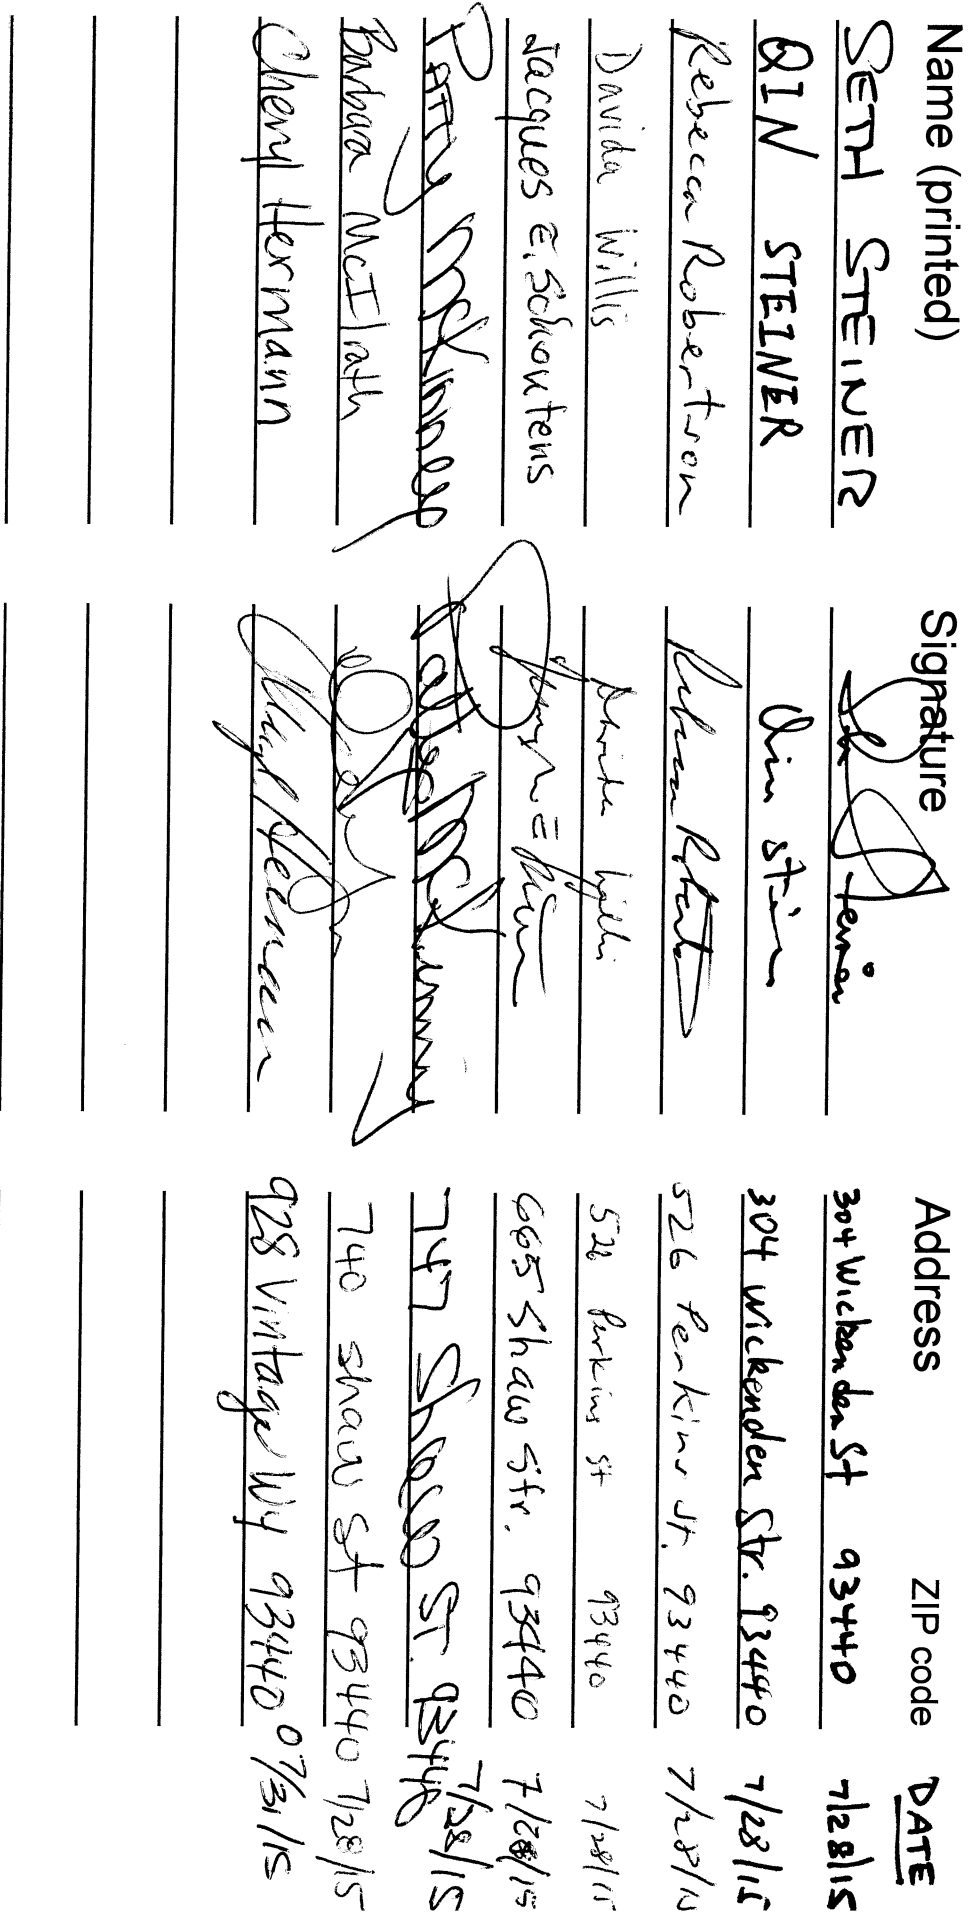 Name (printed) Signature Address ZIP code DATE
SETH STEINER Seth Steiner 304 Wickenden St 93440 7/28/15
QIN STEINER Qin Stein 304 Wickenden Str. 93440 7/28/15
Rebecca Robertson 526 Perkins St. 93440 7/28/15
Davida Willis 526 Perkins St 93440 7/28/15
Jacques E. Schoutens 665 Shaw Str. 93440 7/28/15
Patty McKinney 747 Shaw ST. 93440 7/28/15
Barbara McIlrath 740 Shaw St 93440 7/28/15
Cheryl Hermann Cheryl Hermann 928 Vintage Wy 93440 07/31/15